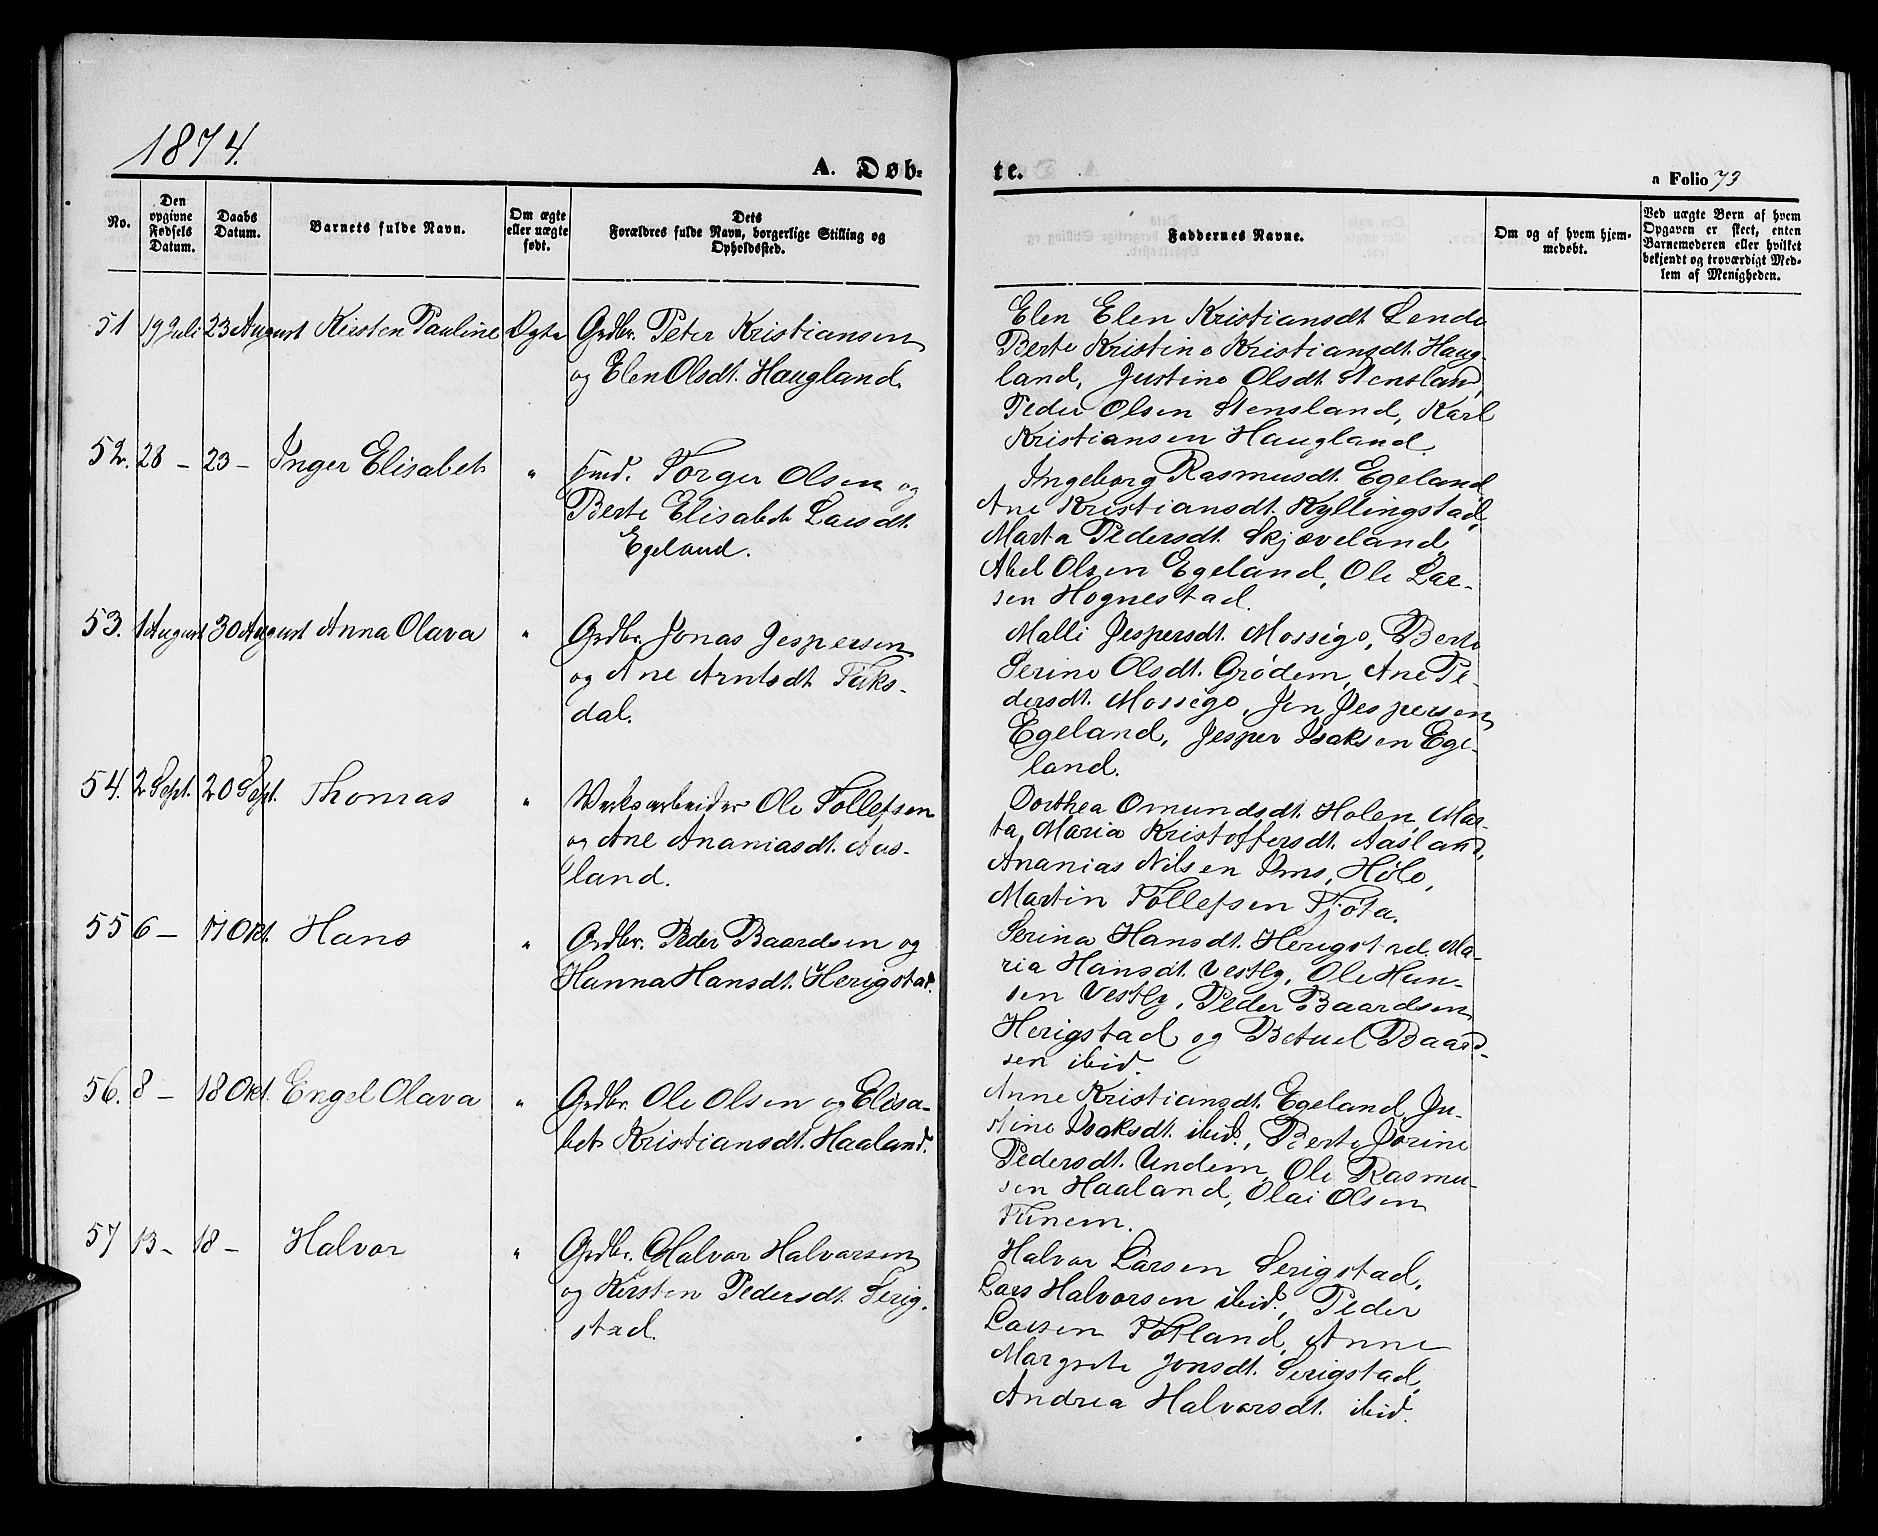 1874.
A. Døb=
te.
a Folio 73
No.
Den opgivne Fødsels Datum.
Daabs Datum.
Barnets fulde Navn.
Om ægte eller uægte født.
Dets Forældres fulde Navn, borgerlige Stilling og Opholdssted.
Faddernes Navne.
Om og af hvem hjem-
medøbt.
Ved uægte Børn af hvem
Opgaven er skeet, enten
Barnemoderen eller hvilket
bekjendt og troværdigt Med-
lem af Menigheden.
51 19 Juli 23 August Kirsten Pauline Ægte Grdbr. Peter Kristiansen
og Elen Olsdt. Haugland.
Elen Elen Kristiansdt. Lende
Berte Kristine Kristiansdt. Haug-
land, Justine Olsdt. Stensland,
Peder Olsen Stensland, Karl
Kristiansen Haugland.
52. 28 – 23 – Inger Elisabet " Torger Olsen og
Berte Elisabet Larsdt.
Egeland.
Ingeborg Rasmusdt. Egeland,
Ane Kristiansdt. Kyllingstad,
Marta Pedersdt. Skjæveland,
Abel Olsen Egeland, Ole Lar-
sen Hognestad.
53. 1 August 30 August Anna Olava " Grdbr. Jonas Jespersen
og Ane Arntsdt. Taks-
dal.
Malli Jespersdt. Mossige, Berte
Serine Olsdt. Grødem, Ane Pe-
dersdt. Mossige, Jon Jespersen
Egeland, Jesper Isaksen Ege-
land.
54. 2 Sept. 20 Sept. Thomas " Verksarbeider Ole Tollefsen
og Ane Ananiasdt. Aas-
land.
Dorthea Omundsdt. Holen, Mar-
ta Maria Kristoffersdt. Aasland,
Ananias Nilsen Ims, Høle,
Martin Tollefsen Tjøta.
55 6 – 11 Okt. Hans " Grdbr. Peder Baardsen og
Hanna Hansdt. Herigstad.
Serina Hansdt. Herigstad, Ma-
ria Hansdt. Vestly, Ole Han-
sen Vestly, Peder Baardsen
Herigstad og Betuel Baard-
sen ibid.
56. 8 – 18 Okt. Engel Olava " Grdbr. Ole Olsen og Elisa-
bet Kristiansdt. Haaland.
Anne Kristiansdt. Egeland, Ju-
stine Isaksdt. ibid., Berte Jorine
Pedersdt. Undem, Ole Rasmu-
sen Haaland, Olai Olsen
Tunem.
57 13 – 18 – Halvor " Grdbr. Halvor Halvorsen
og Kirsten Pedersdt. Serig-
stad.
Halvor Larsen Serigstad,
Lars Halvorsen ibid., Peder
Larsen Fotland, Anne
Margrete Jonsdt. Serigstad,
Andrea Halvorsdt. ibid.